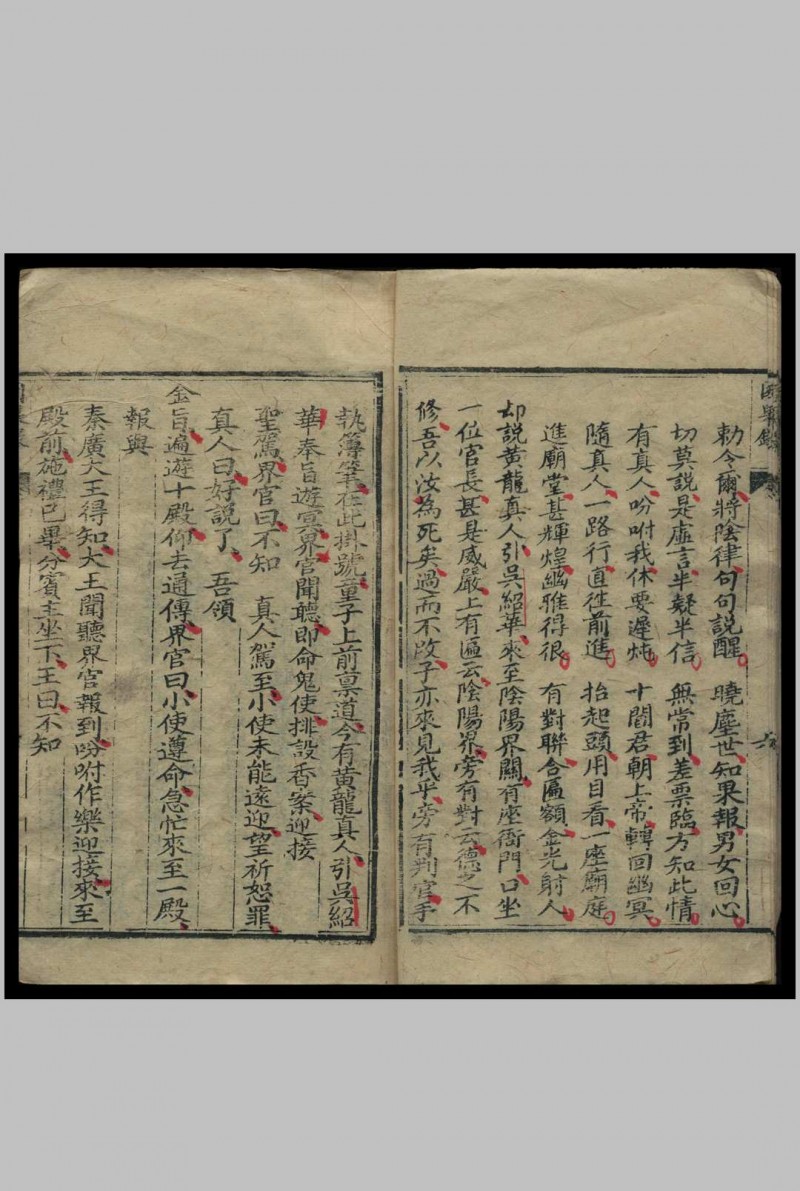 勅令爾將陰律句句說醒 曉塵世知果報男女回心
切莫說是虛言半疑半信 無常到差票臨方知此情
有真人吩咐我休要遲炖 十閻君朝上帝轉回幽冥
隨真人一路行直徃前進 抬起頭用目看一座廟庭
進廟堂甚輝煌幽雅得很 有對聯合匾額金光射人
却說黃龍真人引吳紹華來至陰陽界關有座衙門口坐
一位官長甚是威嚴上有匾云陰陽界旁有對云德之不
修吾以汝為死矣過而不改子亦來見我乎旁有判官手
六
執簿筆在此掛號童子上前禀道今有黃龍真人引吳紹
華奉旨遊冥界官聞聽即命鬼使排設香案迎接
聖駕界官曰不知 真人駕至小使未能遠迎望祈恕罪
真人曰好說了 吾領
金旨遍遊十殿仰去通傳界官曰小使遵命急忙來至一殿
報與
秦廣大王得知大王聞聽界官報到吩咐作樂迎接來至
殿前施禮已畢分賓主坐下王曰不知